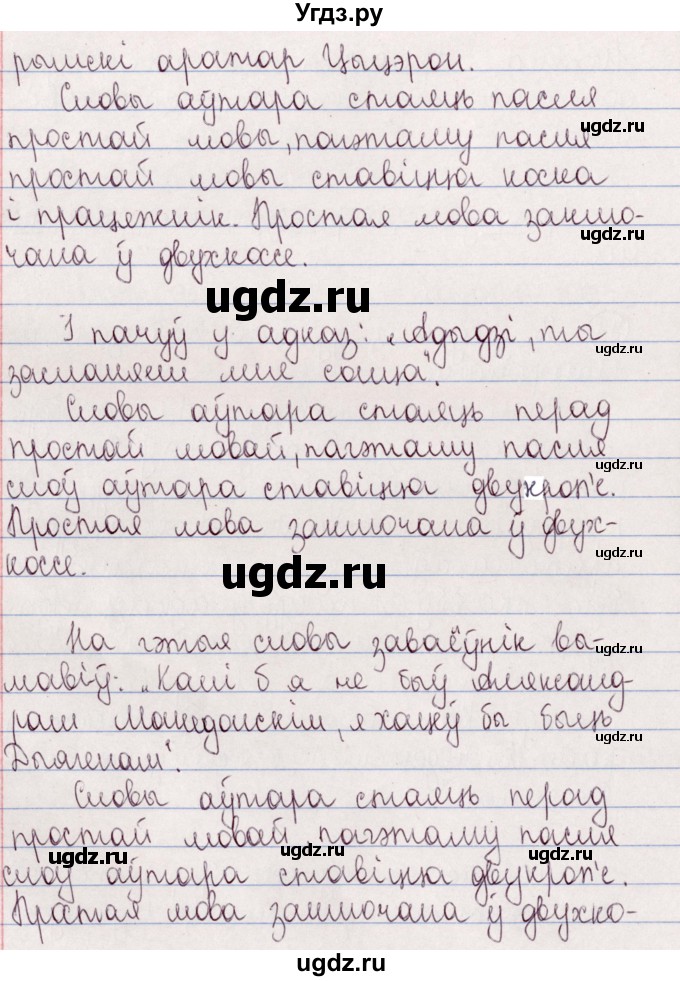 Угдз.ру
рымскі аратар Цыцэрон.
Словы аўтара стаяць пасля
ugdz.ru
простай мовы, пагэтаму пасля
ugdz.ru
простай мовы ставіцца коска
і працяжнік. Простая мова заклю-
ugdz.ru
чана ў двухкоссе.
ugdz.ru
І пачуў у адказ: „Адыдзі, ты
ugdz.ru
засланяеш мне сонца“.
Словы аўтара стаяць перад
ugdz.ru
простай мовай, пагэтаму пасля
слоў аўтара ставіцца двукроп'е.
ugdz.ru
Простая мова заключана ў двух-
коссе.
ugdz.ru
На гэтыя словы заваёўнік вы-
ugdz.ru
мавіў: „Калі б я не быў Аляксанд-
рам Македонскім, я хацеў бы быць
ugdz.ru
Дыягенам“.
Словы аўтара стаяць перад
ugdz.ru
простай мовай, пагэтаму пасля
ugdz.ru ugdz.ru ugdz.ru
слоў аўтара ставіцца двукроп'е.
Простая мова заключана ў двухко-
ugdz.ru